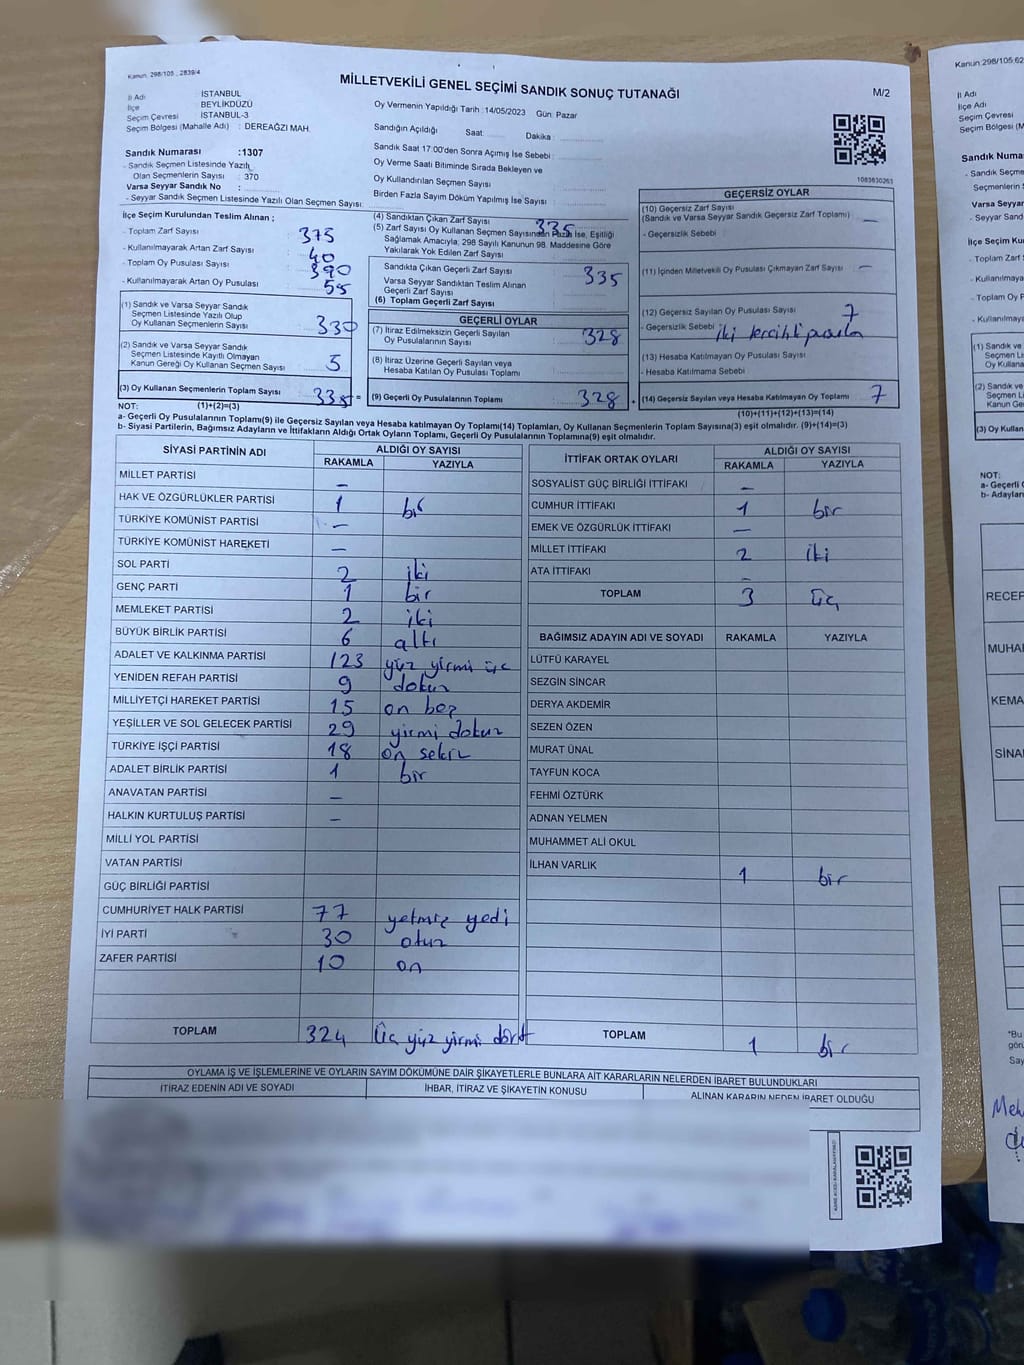 Kanun: 298/105 , 2839/4
MİLLETVEKİLİ GENEL SEÇİMİ SANDIK SONUÇ TUTANAĞI
M/2
İl Adı : İSTANBUL
İlçe : BEYLİKDÜZÜ
Seçim Çevresi : İSTANBUL-3
Seçim Bölgesi (Mahalle Adı) : DEREAĞZI MAH.
Oy Vermenin Yapıldığı Tarih :14/05/2023 Gün: Pazar
Sandığın Açıldığı Saat: Dakika :
Sandık Saat 17:00'den Sonra Açımış İse Sebebi :
Oy Verme Saati Bitiminde Sırada Bekleyen ve
Oy Kullandırılan Seçmen Sayısı :
Birden Fazla Sayım Döküm Yapılmış İse Sayısı :
1083630263
Sandık Numarası :1307
- Sandık Seçmen Listesinde Yazılı
Olan Seçmenlerin Sayısı : 370
Varsa Seyyar Sandık No :
- Seyyar Sandık Seçmen Listesinde Yazılı Olan Seçmen Sayısı:
İlçe Seçim Kurulundan Teslim Alınan ;
- Toplam Zarf Sayısı : 375
- Kullanılmayarak Artan Zarf Sayısı : 40
- Toplam Oy Pusulası Sayısı : 390
- Kullanılmayarak Artan Oy Pusulası : 55
(1) Sandık ve Varsa Seyyar Sandık
Seçmen Listesinde Yazılı Olup
Oy Kullanan Seçmenlerin Sayısı : 330
(2) Sandık ve Varsa Seyyar Sandık
Seçmen Listesinde Kayıtlı Olmayan
Kanun Gereği Oy Kullanan Seçmen Sayısı : 5
(3) Oy Kullanan Seçmenlerin Toplam Sayısı : 335 =
(1)+(2)=(3)
(4) Sandıktan Çıkan Zarf Sayısı : 335
(5) Zarf Sayısı Oy Kullanan Seçmen Sayısından Fazla İse, Eşitliği
Sağlamak Amacıyla; 298 Sayılı Kanunun 98. Maddesine Göre
Yakılarak Yok Edilen Zarf Sayısı :
Sandıkta Çıkan Geçerli Zarf Sayısı : 335
Varsa Seyyar Sandıktan Teslim Alınan
Geçerli Zarf Sayısı :
(6) Toplam Geçerli Zarf Sayısı :
GEÇERLİ OYLAR
(7) İtiraz Edilmeksizin Geçerli Sayılan
Oy Pusulalarının Sayısı : 328
(8) İtiraz Üzerine Geçerli Sayılan veya
Hesaba Katılan Oy Pusulası Toplamı :
(9) Geçerli Oy Pusulalarının Toplamı : 328 +
GEÇERSİZ OYLAR
(10) Geçersiz Zarf Sayısı
(Sandık ve Varsa Seyyar Sandık Geçersiz Zarf Toplamı) : —
- Geçersizlik Sebebi :
(11) İçinden Milletvekili Oy Pusulası Çıkmayan Zarf Sayısı : —
(12) Geçersiz Sayılan Oy Pusulası Sayısı : 7
- Geçersizlik Sebebi : iki tercihli pusula
(13) Hesaba Katılmayan Oy Pusulası Sayısı :
- Hesaba Katılmama Sebebi :
(14) Geçersiz Sayılan veya Hesaba Katılmayan Oy Toplamı : 7
(10)+(11)+(12)+(13)=(14)
NOT:
a- Geçerli Oy Pusulalarının Toplamı(9) ile Geçersiz Sayılan veya Hesaba katılmayan Oy Toplamı(14) Toplamları, Oy Kullanan Seçmenlerin Toplam Sayısına(3) eşit olmalıdır. (9)+(14)=(3)
b- Siyasi Partilerin, Bağımsız Adayların ve İttifakların Aldığı Ortak Oyların Toplamı, Geçerli Oy Pusulalarının Toplamına(9) eşit olmalıdır.
SİYASİ PARTİNİN ADI ALDIĞI OY SAYISI
RAKAMLA YAZIYLA
MİLLET PARTİSİ —
HAK VE ÖZGÜRLÜKLER PARTİSİ 1 bir
TÜRKİYE KOMÜNİST PARTİSİ —
TÜRKİYE KOMÜNİST HAREKETİ —
SOL PARTİ 2 iki
GENÇ PARTİ 1 bir
MEMLEKET PARTİSİ 2 iki
BÜYÜK BİRLİK PARTİSİ 6 altı
ADALET VE KALKINMA PARTİSİ 123 yüz yirmi üç
YENİDEN REFAH PARTİSİ 9 dokuz
MİLLİYETÇİ HAREKET PARTİSİ 15 on beş
YEŞİLLER VE SOL GELECEK PARTİSİ 29 yirmi dokuz
TÜRKİYE İŞÇİ PARTİSİ 18 on sekiz
ADALET BİRLİK PARTİSİ 1 bir
ANAVATAN PARTİSİ —
HALKIN KURTULUŞ PARTİSİ —
MİLLİ YOL PARTİSİ
VATAN PARTİSİ
GÜÇ BİRLİĞİ PARTİSİ
CUMHURİYET HALK PARTİSİ 77 yetmiş yedi
İYİ PARTİ 30 otuz
ZAFER PARTİSİ 10 on
TOPLAM 324 Üç yüz yirmi dört
İTTİFAK ORTAK OYLARI ALDIĞI OY SAYISI
RAKAMLA YAZIYLA
SOSYALİST GÜÇ BİRLİĞİ İTTİFAKI —
CUMHUR İTTİFAKI 1 bir
EMEK VE ÖZGÜRLÜK İTTİFAKI —
MİLLET İTTİFAKI 2 iki
ATA İTTİFAKI —
TOPLAM 3 üç
BAĞIMSIZ ADAYIN ADI VE SOYADI RAKAMLA YAZIYLA
LÜTFÜ KARAYEL
SEZGİN SİNCAR
DERYA AKDEMİR
SEZEN ÖZEN
MURAT ÜNAL
TAYFUN KOCA
FEHMİ ÖZTÜRK
ADNAN YELMEN
MUHAMMET ALİ OKUL
İLHAN VARLIK 1 bir
TOPLAM 1 bir
OYLAMA İŞ VE İŞLEMLERİNE VE OYLARIN SAYIM DÖKÜMÜNE DAİR ŞİKAYETLERLE BUNLARA AİT KARARLARIN NELERDEN İBARET BULUNDUKLARI
İTİRAZ EDENİN ADI VE SOYADI İHBAR, İTİRAZ VE ŞİKAYETİN KONUSU ALINAN KARARIN NEDEN İBARET OLDUĞU
Kanun: 298/105
İl Adı
İlçe Adı
Seçim Çevresi
Seçim Bölgesi (M
Sandık Numa
- Sandık Seçme
Seçmenlerin
Varsa Seyyar
- Seyyar Sand
İlçe Seçim Ku
- Toplam Zarf
- Kullanılmaya
- Toplam Oy P
- Kullanılmaya
(1) Sandık ve
Seçmen Li
Oy Kullana
(2) Sandık ve
Seçmen Li
Kanun Ger
(3) Oy Kullan
NOT:
a- Geçerli O
b- Adayların
RECEP
MUHA
KEMA
SİNA
*Bu
gör
Say
Meh